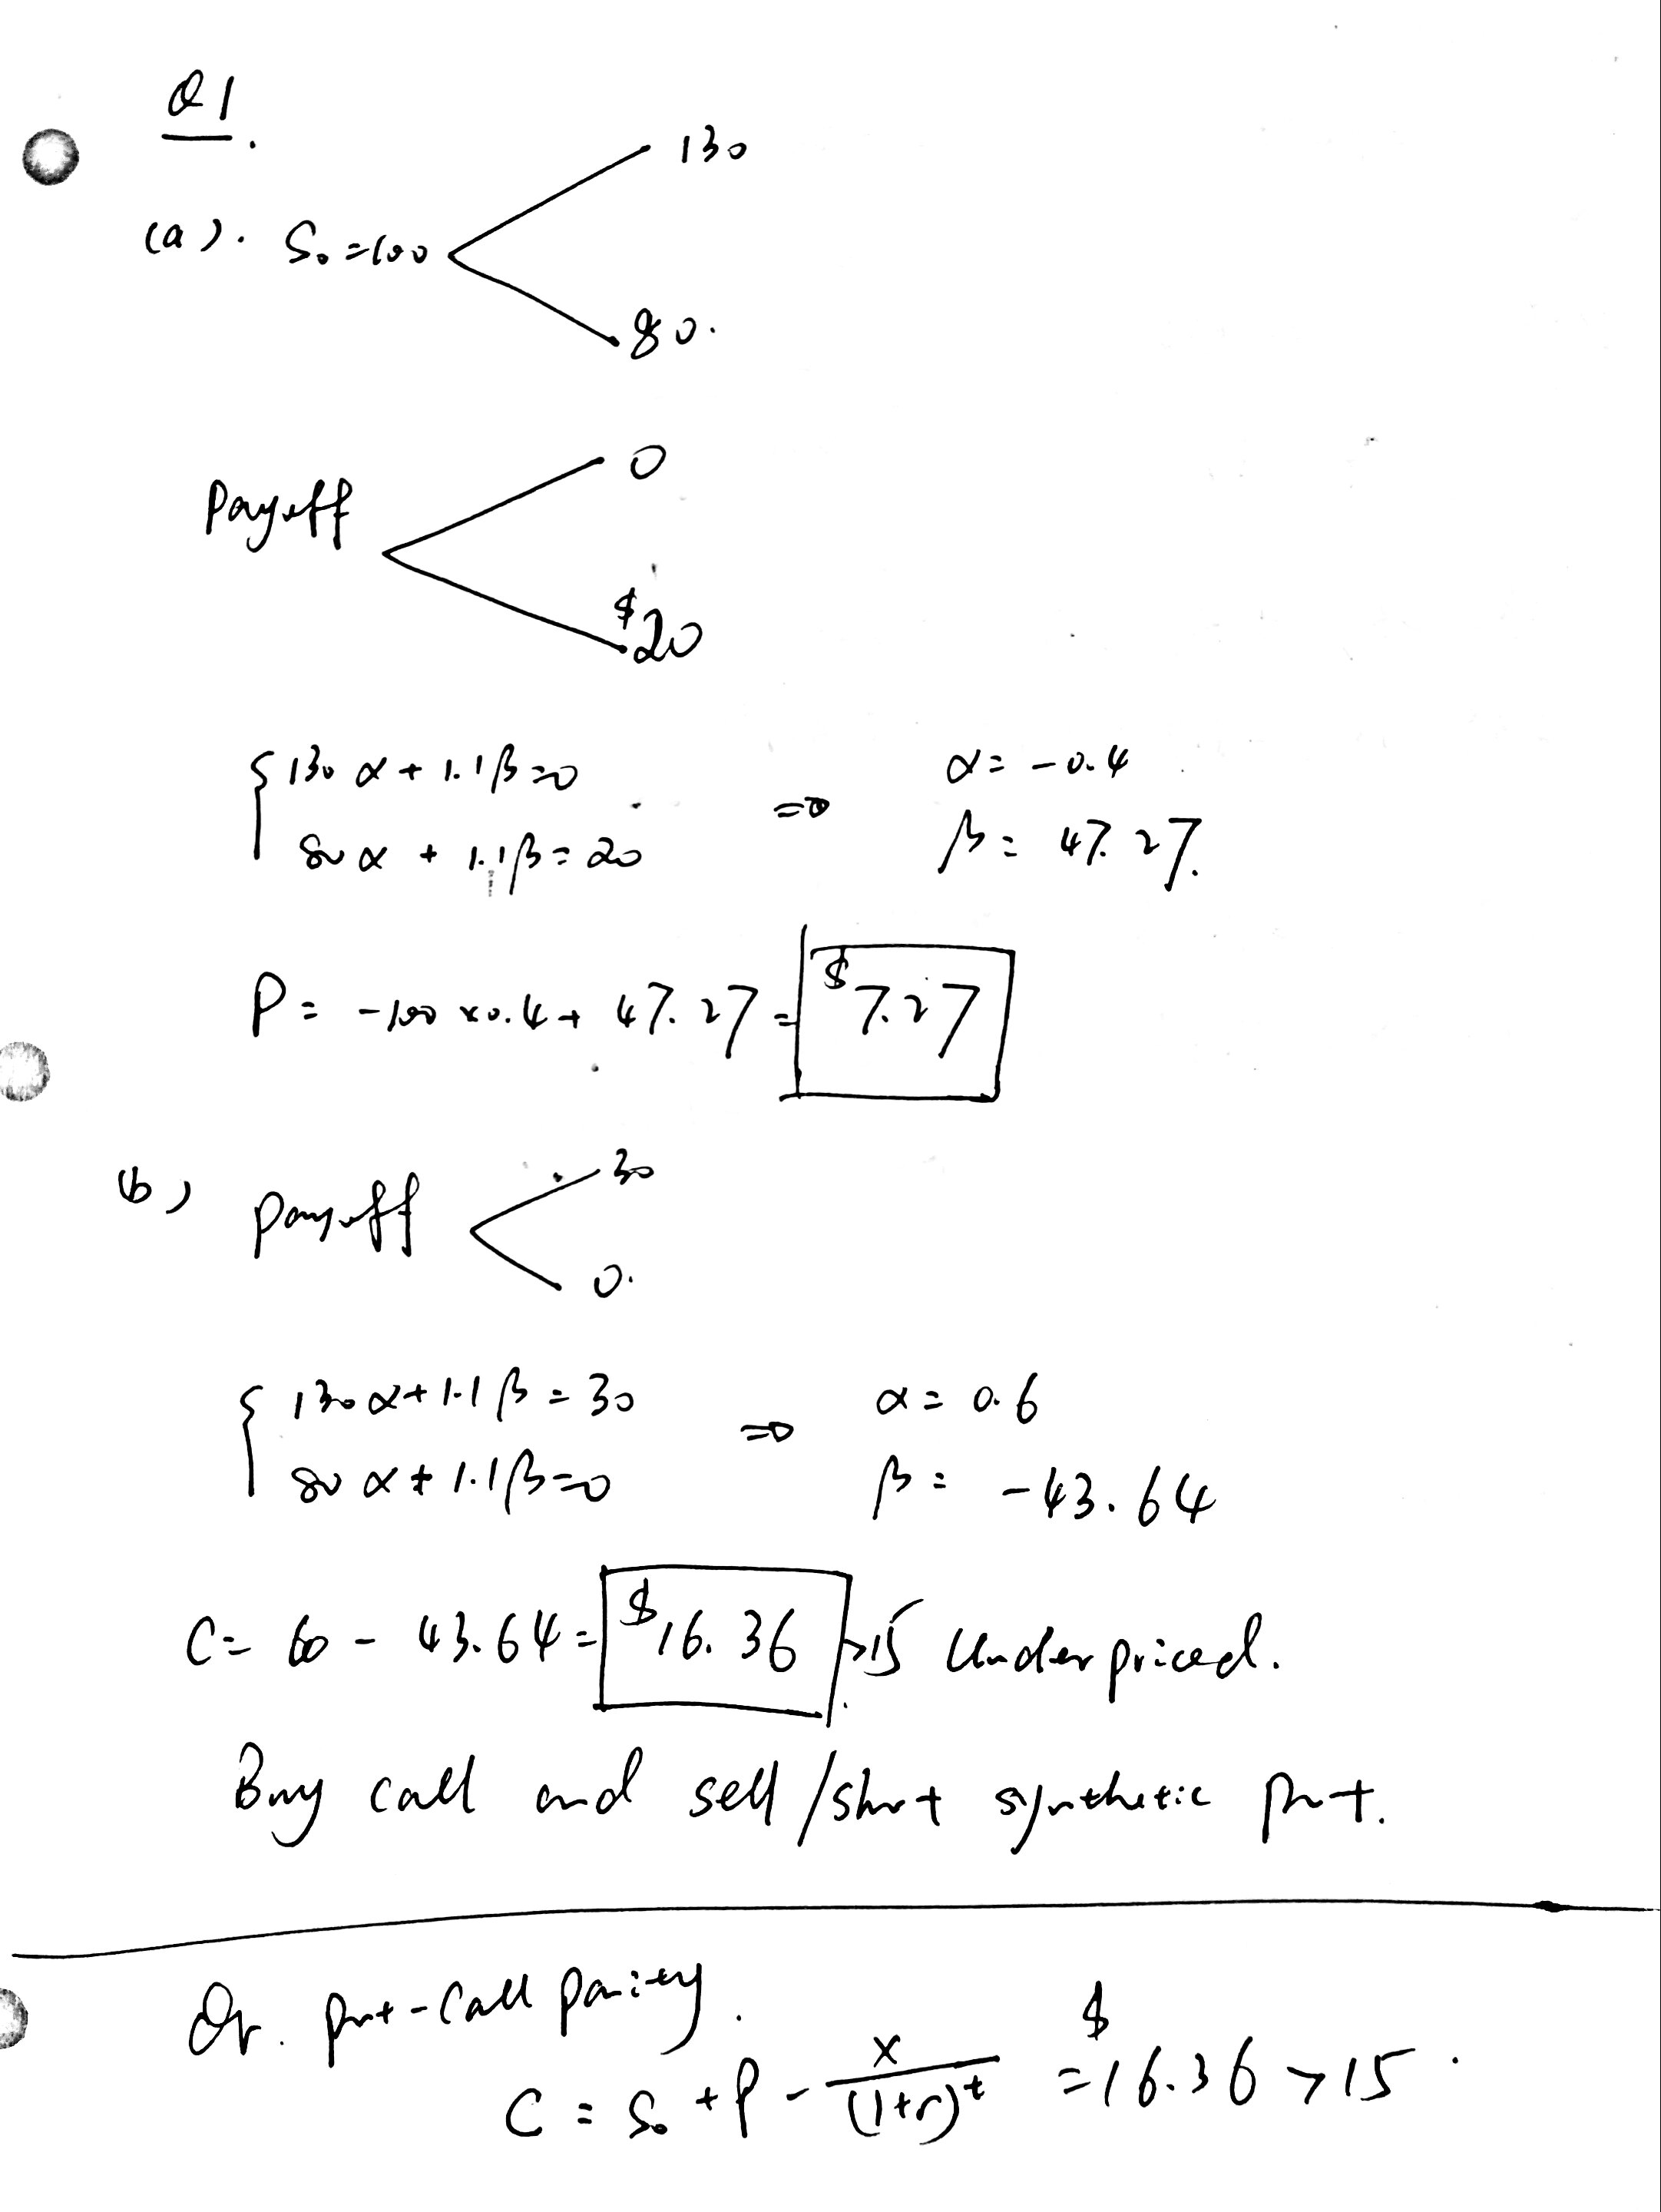 Q1.
130
(a). S₀=100
80.
0
Payoff
$20
130 α + 1.1β=0
α= -0.4
=>
80 α + 1.1β= 20
β= 47.27.
P= -100 x0.4+ 47.27= $7.27
(b) payoff
30
0.
130α+1.1β=30
α= 0.6
=>
80 α+1.1β=0
β= -43.64
C= 60 - 43.64= $16.36 >15 Underpriced.
Buy call and sell/short synthetic put.
Or. put-call parity.
C = S₀ +P - X/(1+r)^t = $16.36 >15.